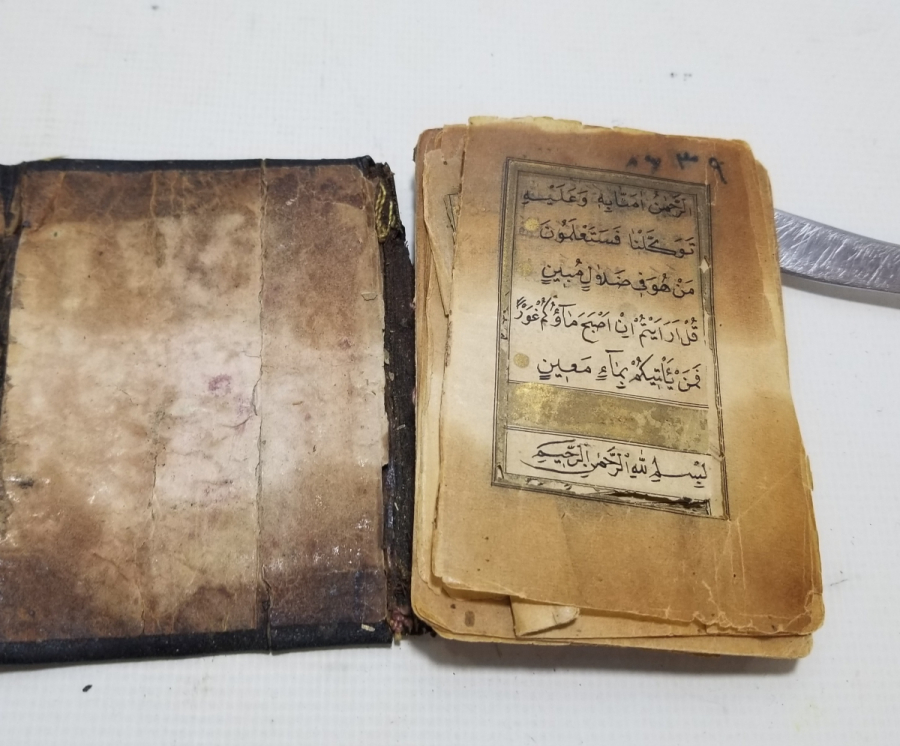 الرَّحْمٰنُ اٰمَنَّا بِهٖ وَعَلَيْهِ
تَوَكَّلْنَا فَسَتَعْلَمُونَ
مَنْ هُوَ فِى ضَلَالٍ مُبِينٍ
قُلْ اَرَاَيْتُمْ اِنْ اَصْبَحَ مَآؤُكُمْ غَوْرًا
فَمَنْ يَأْتِيكُمْ بِمَآءٍ مَعِينٍ
بِسْمِ اللهِ الرَّحْمٰنِ الرَّحِيمِ